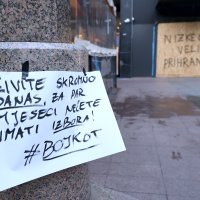 ŽIVITE SKROMNO
DANAS, ZA PAR
MJESECI NEĆETE
IMATI IZBORA!
#BOJKOT
NIZKE
VELI
PRIHRAN